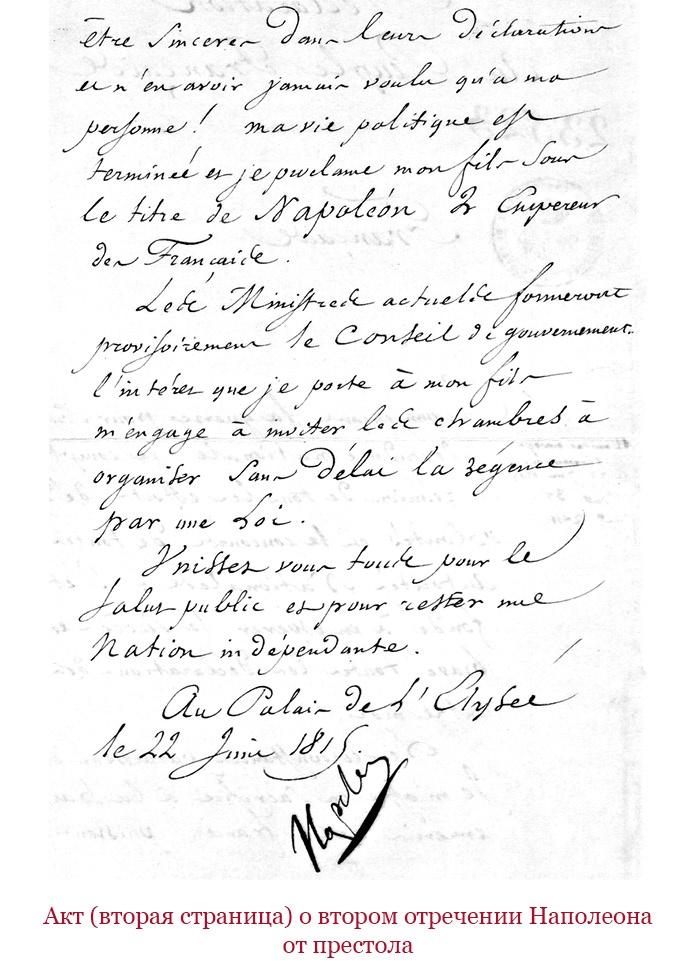 être sinceres dans leurs déclarations
et n'en avoir jamais voulu qu'a ma
personne! ma vie politique est
terminée et je proclame mon fils sous
le titre de Napoléon 2 Empereur
des Français.
Les Ministres actuels formeront
provisoirement le Conseil de gouvernement.
l'intéret que je porte à mon fils
m'engage à inviter les chambres à
organiser sans délai la régence
par une Loi.
Unissez vous tous pour le
salut public et pour rester une
Nation indépendante.
Au Palais de L'Elysée
le 22 Juin 1815.
Napoleon
Акт (вторая страница) о втором отречении Наполеона
от престола